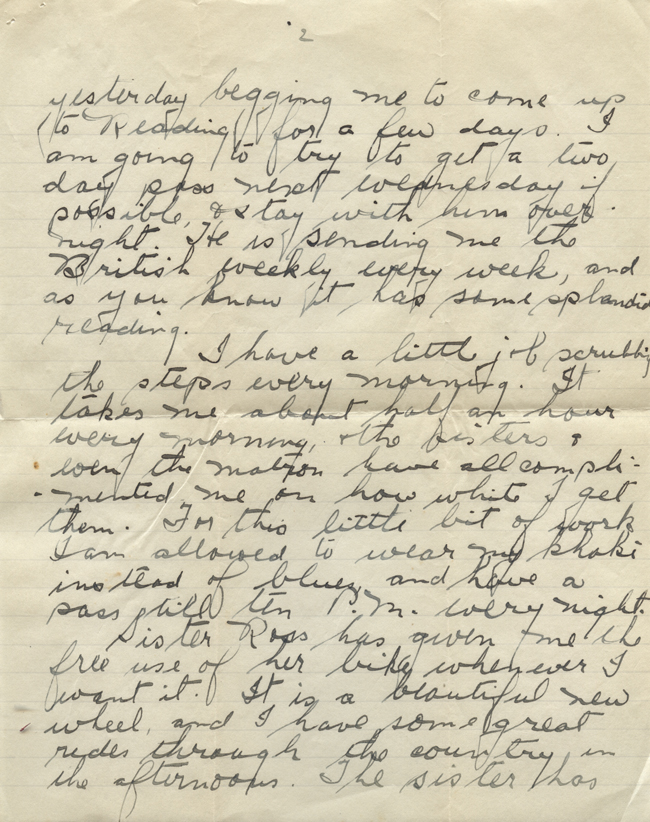 2
yesterday begging me to come up
to Reading for a few days. I
am going to try to get a two
day pass next wednesday if
possible, & stay with him over
night. He is sending me the
British weekly every week, and
as you know it has some splandid
reading.
I have a little job scrubbing
the steps every morning. It
takes me about half an hour
every morning, & the sisters &
even the matron have all compli-
-mented me on how white I get
them. For this little bit of work
I am allowed to wear my khaki
instead of blues, and have a
pass till ten P.M. every night.
Sister Ross has given me the
free use of her bike whenever I
want it. It is a beautiful new
wheel, and I have some great
rides through the country in
the afternoons. The sister has